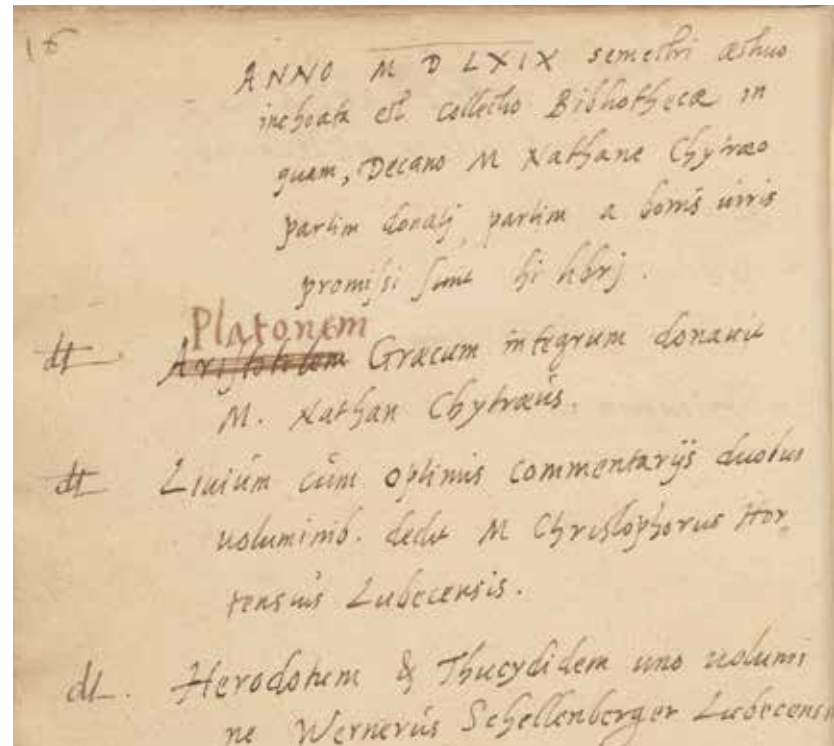 16
ANNO M D LXIX semestri æstiuo
inchoata est collectio Bibliothecæ in
quam, Decano M Nathane Chytræo
partim donatj, partim a bonis uiris
promissi sunt hi librj.
Platonem
dt Aristotelem Græcum integrum donauit
M. Nathan Chytræus.
dt Liuium cum optimis commentarijs duobus
uoluminib. dedit M Christophorus Hor-
tensius Lubecensis.
dt. Herodotum & Thucydidem uno uolumi
ne Wernerus Schellenberger Lubecensis